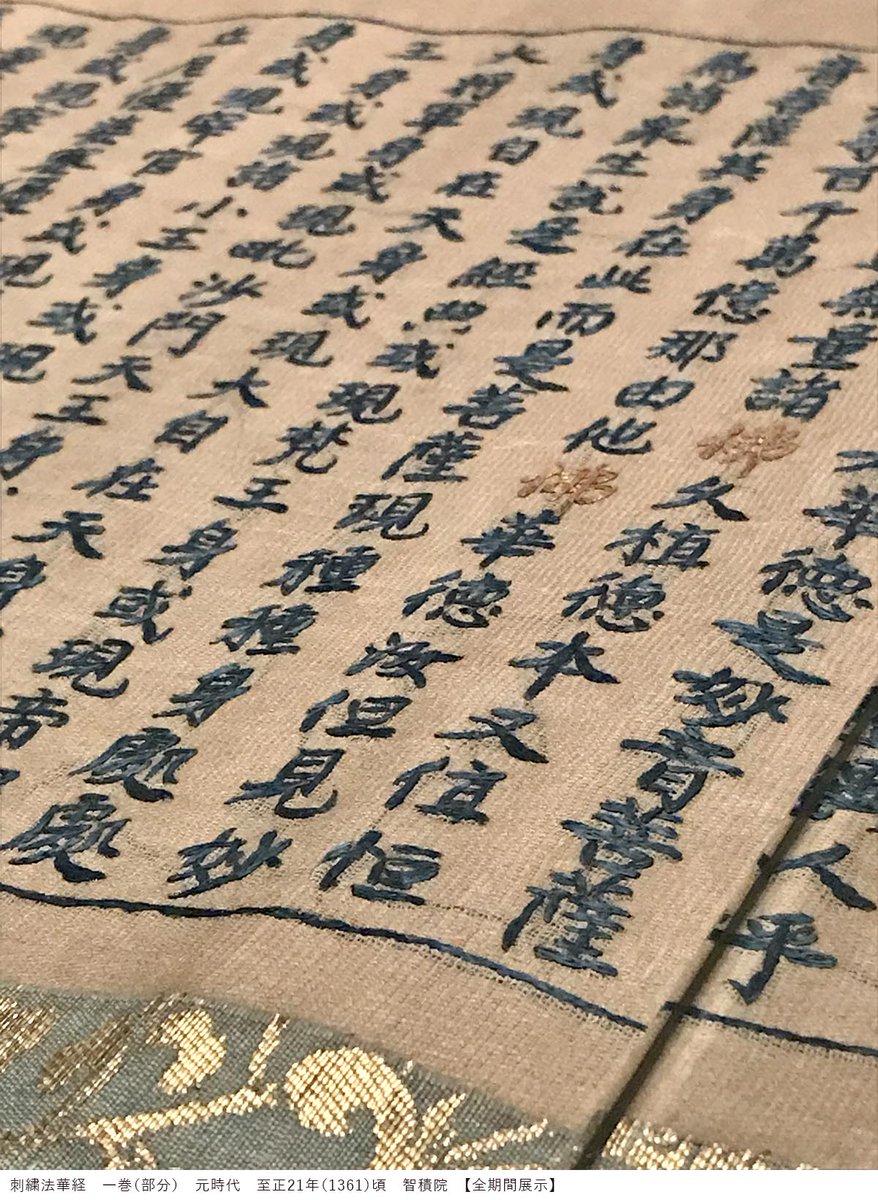 人乎
華德是妙音菩薩
無量諸佛久植德本又值恒
百千萬億那由他佛華德汝但見妙
音菩薩其身在此而是菩薩現種種身處處
為諸衆生說是經典或現梵王身或現帝
身或現自在天身或現大自在天身
大將軍身或現毗沙門天王身
王身或現諸小王身或現
身或現宰官身或現
刺繡法華経　一巻（部分）　元時代　至正21年（1361）頃　智積院　【全期間展示】